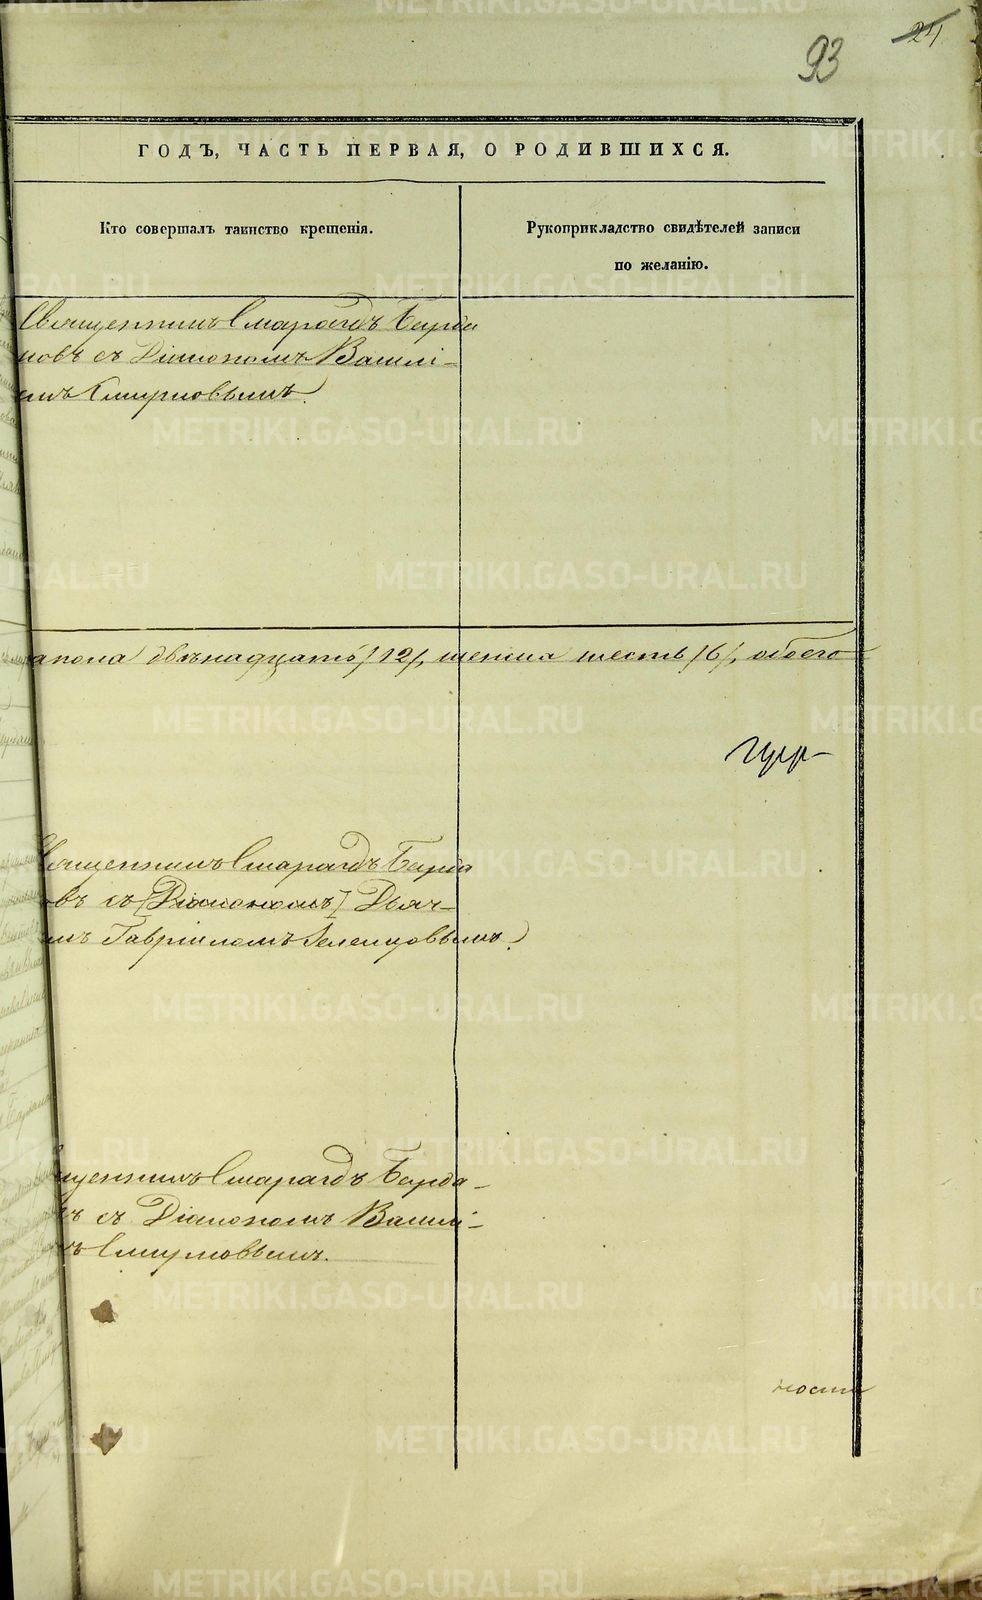 93
24
ГОДЪ, ЧАСТЬ ПЕРВАЯ, О РОДИВШИХСЯ.
Кто совершалъ таинство крещенія.
Рукоприкладство свидѣтелей записи
по желанію.
Священникъ Смарагдъ Барда
ковъ съ Діакономъ Василі-
емъ Смирновымъ.
пола двѣнадцать /12/, женска шесть /6/, обоего
Священникъ Смарагдъ Барда
овъ съ [Діакономъ] Дьяч-
мъ Гавріиломъ Зеленцовымъ.
щенникъ Смарагдъ Барда-
въ съ Діакономъ Василі-
мъ Смирновымъ.
METRIKI.GASO-URAL.RU